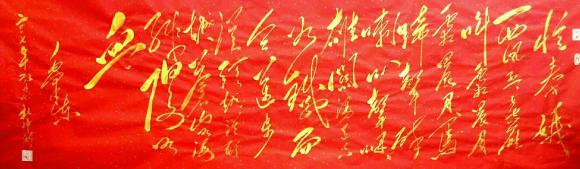 忆秦娥
西风烈长空雁
叫霜晨月
霜晨月马
蹄声碎
喇叭声咽
雄关漫道真
如铁而
今迈步
从头越从头
越苍山如海
残阳如
血